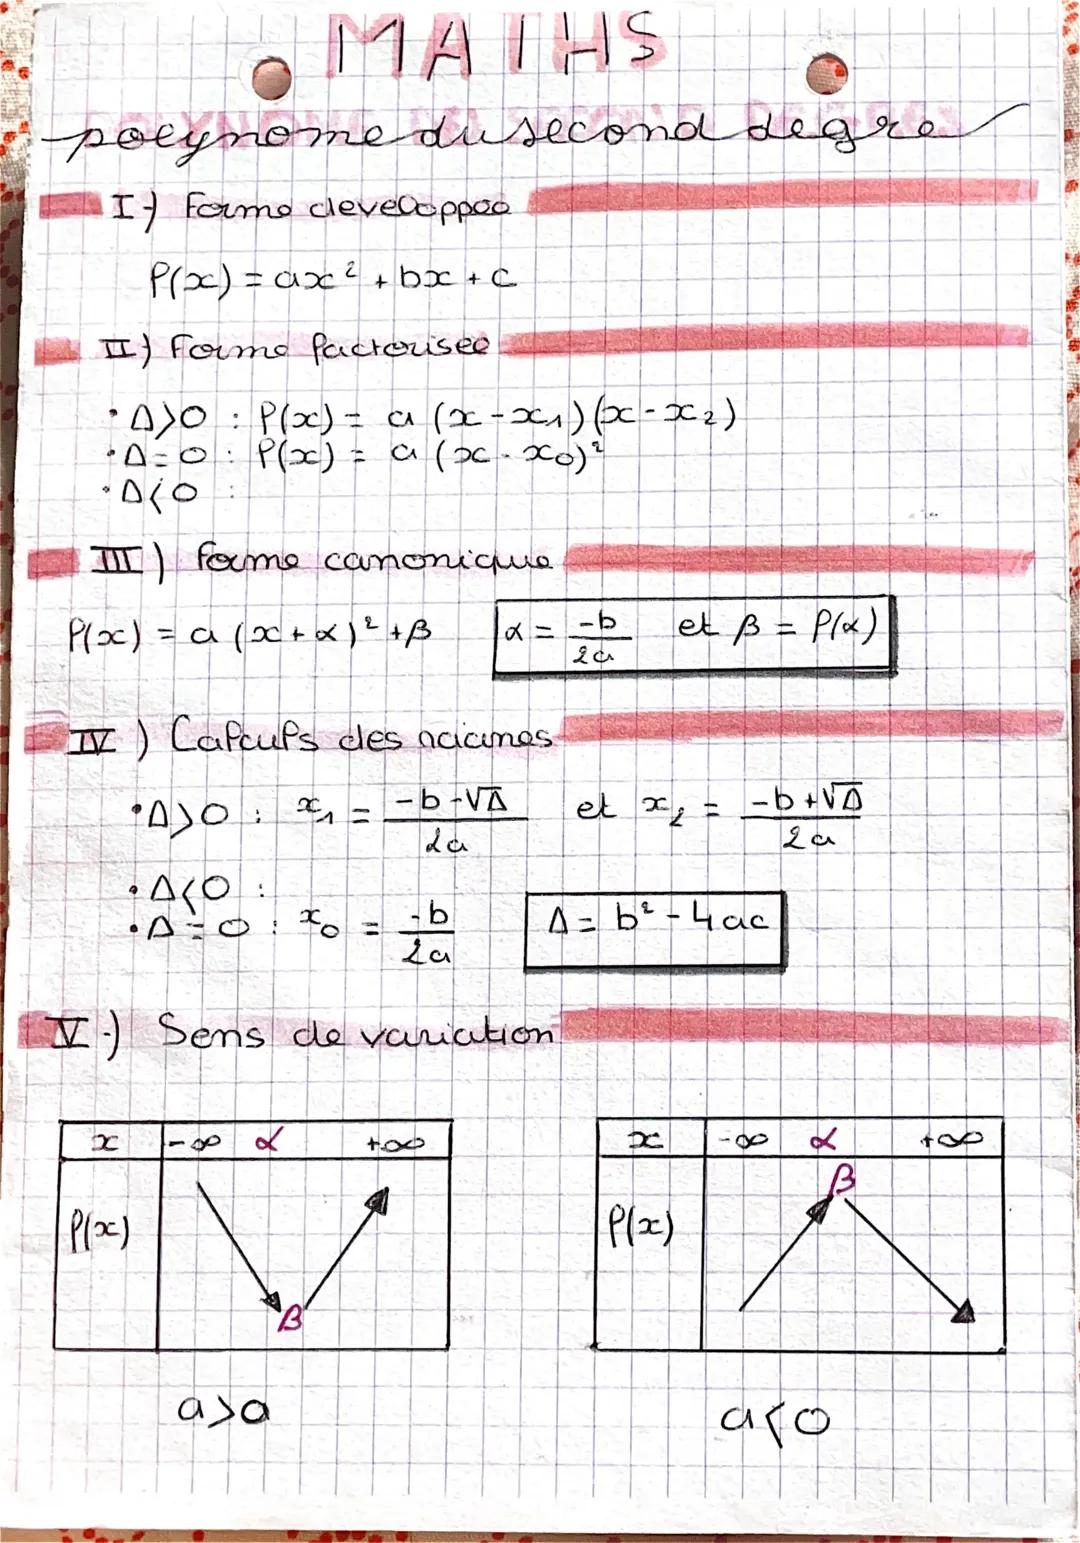 MATHS
polynome du second degré
I-) Forme developpee
P(x) = ax² + bx + c
II) Forme factorisee
• Δ>0 : P(x) = a (x-x₁)(x-x₂)
• Δ=0 : P(x) = a (x-x₀)²
• Δ<0 :
III) forme canonique
P(x) = a (x+α)² + β   α = -b/2a et β = P(α)
IV) Calculs des racines
• Δ>0 : x₁ = -b-√Δ/2a et x₂ = -b+√Δ/2a
• Δ<0 :
• Δ=0 : x₀ = -b/2a   Δ = b² - 4ac
V-) Sens de variation
x -∞ α +∞
P(x)
β
a>a
x -∞ α +∞
β
P(x)
a<0